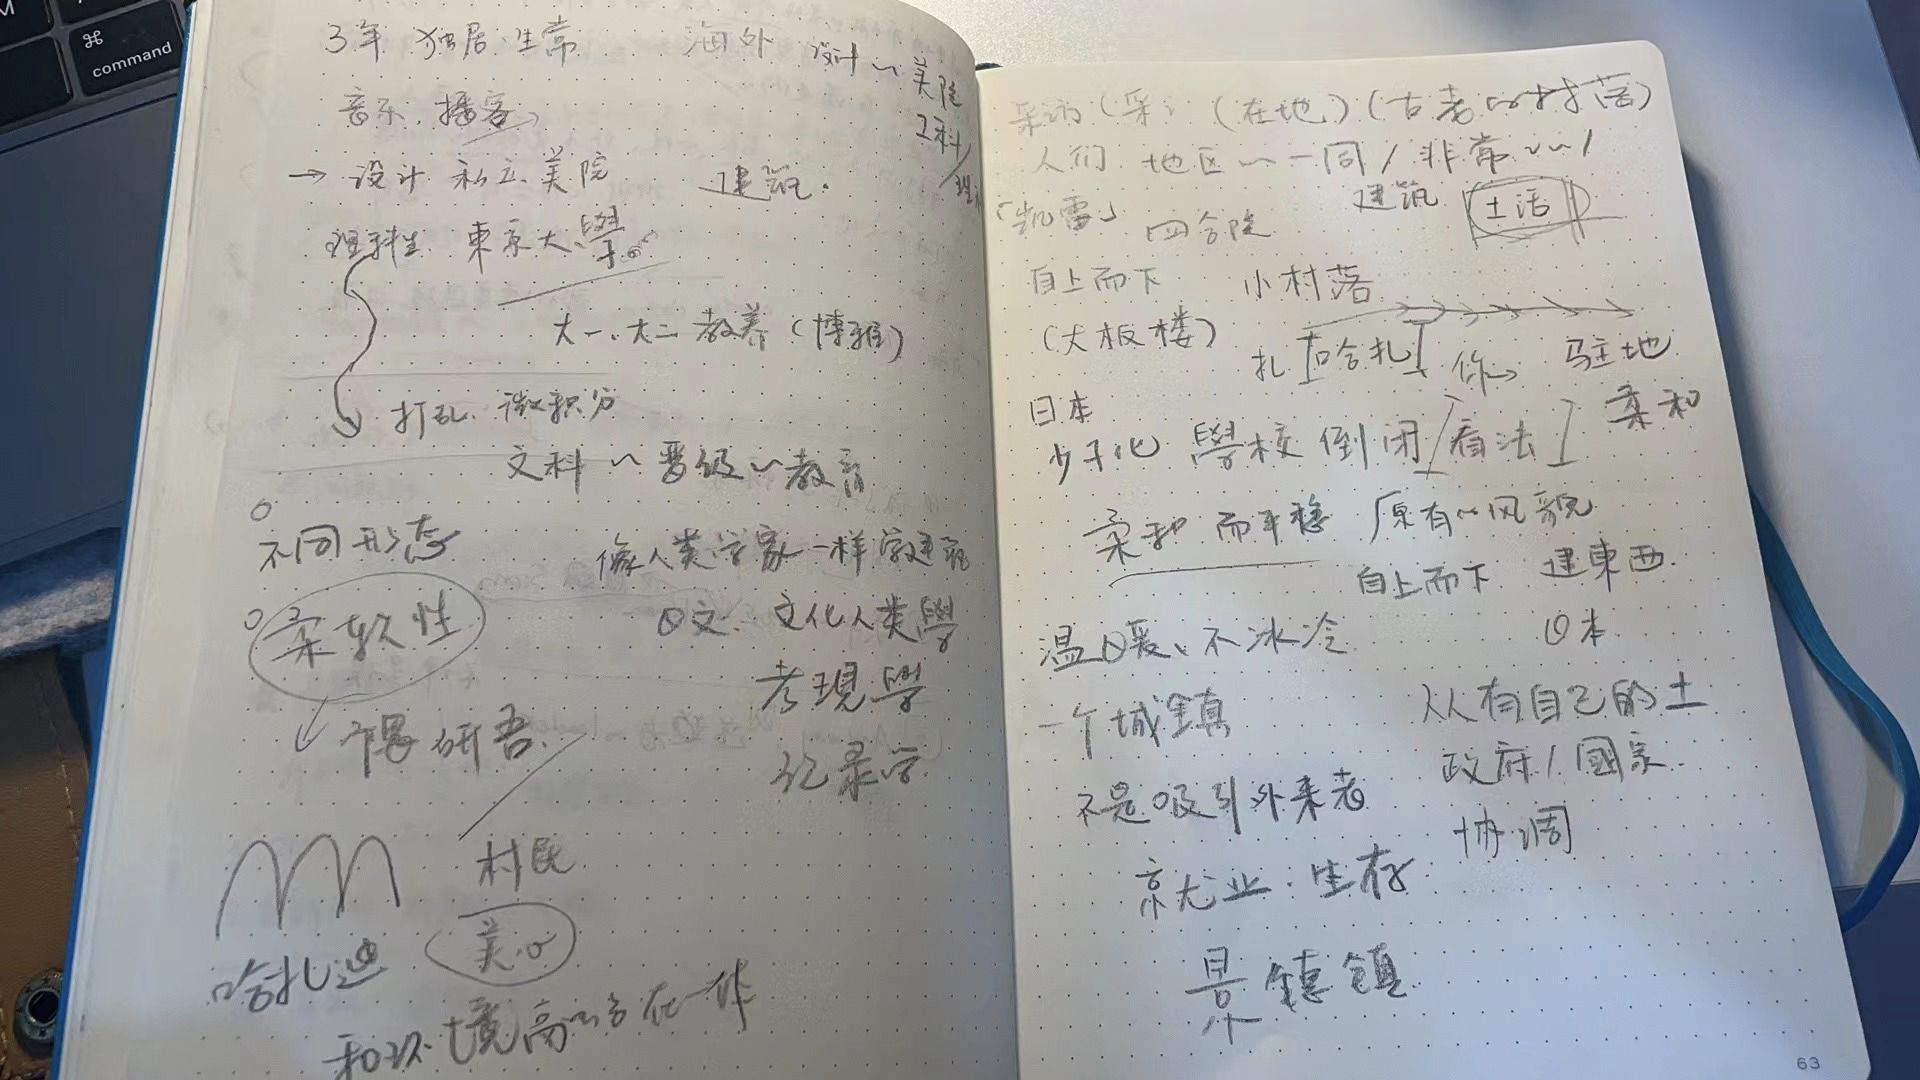 ⌘
command
3年 独居生常 海外 设计~美院
工科/
音乐、播客
→ 设计 私立美院 建筑.
理科生 東京大學。
大一、大二 教养(博雅)
打乱. 微积分
文科~晋级~教育
不同形态
像人类学家一样
柔软性
日文. 文化人类學
考現學
记录学
村民
美·
哈扎
和环境 在一
采访( (在地)(古老~村落)
人们 地区~一同/非常~~/
「凯雷」 四合院 建筑 土活
自上而下 小村落
(大板楼) 扎[哈扎] 你→ 驻地
日本
少子化 學校倒闭[看法] 柔和
柔和而平稳 原有~风貌
自上而下 建東西.
温暖、不冰冷. 日本
一个城鎮 从有自己的土
政府/國家.
不是吸引外来者
协调
就业.生存
景 鎮
63